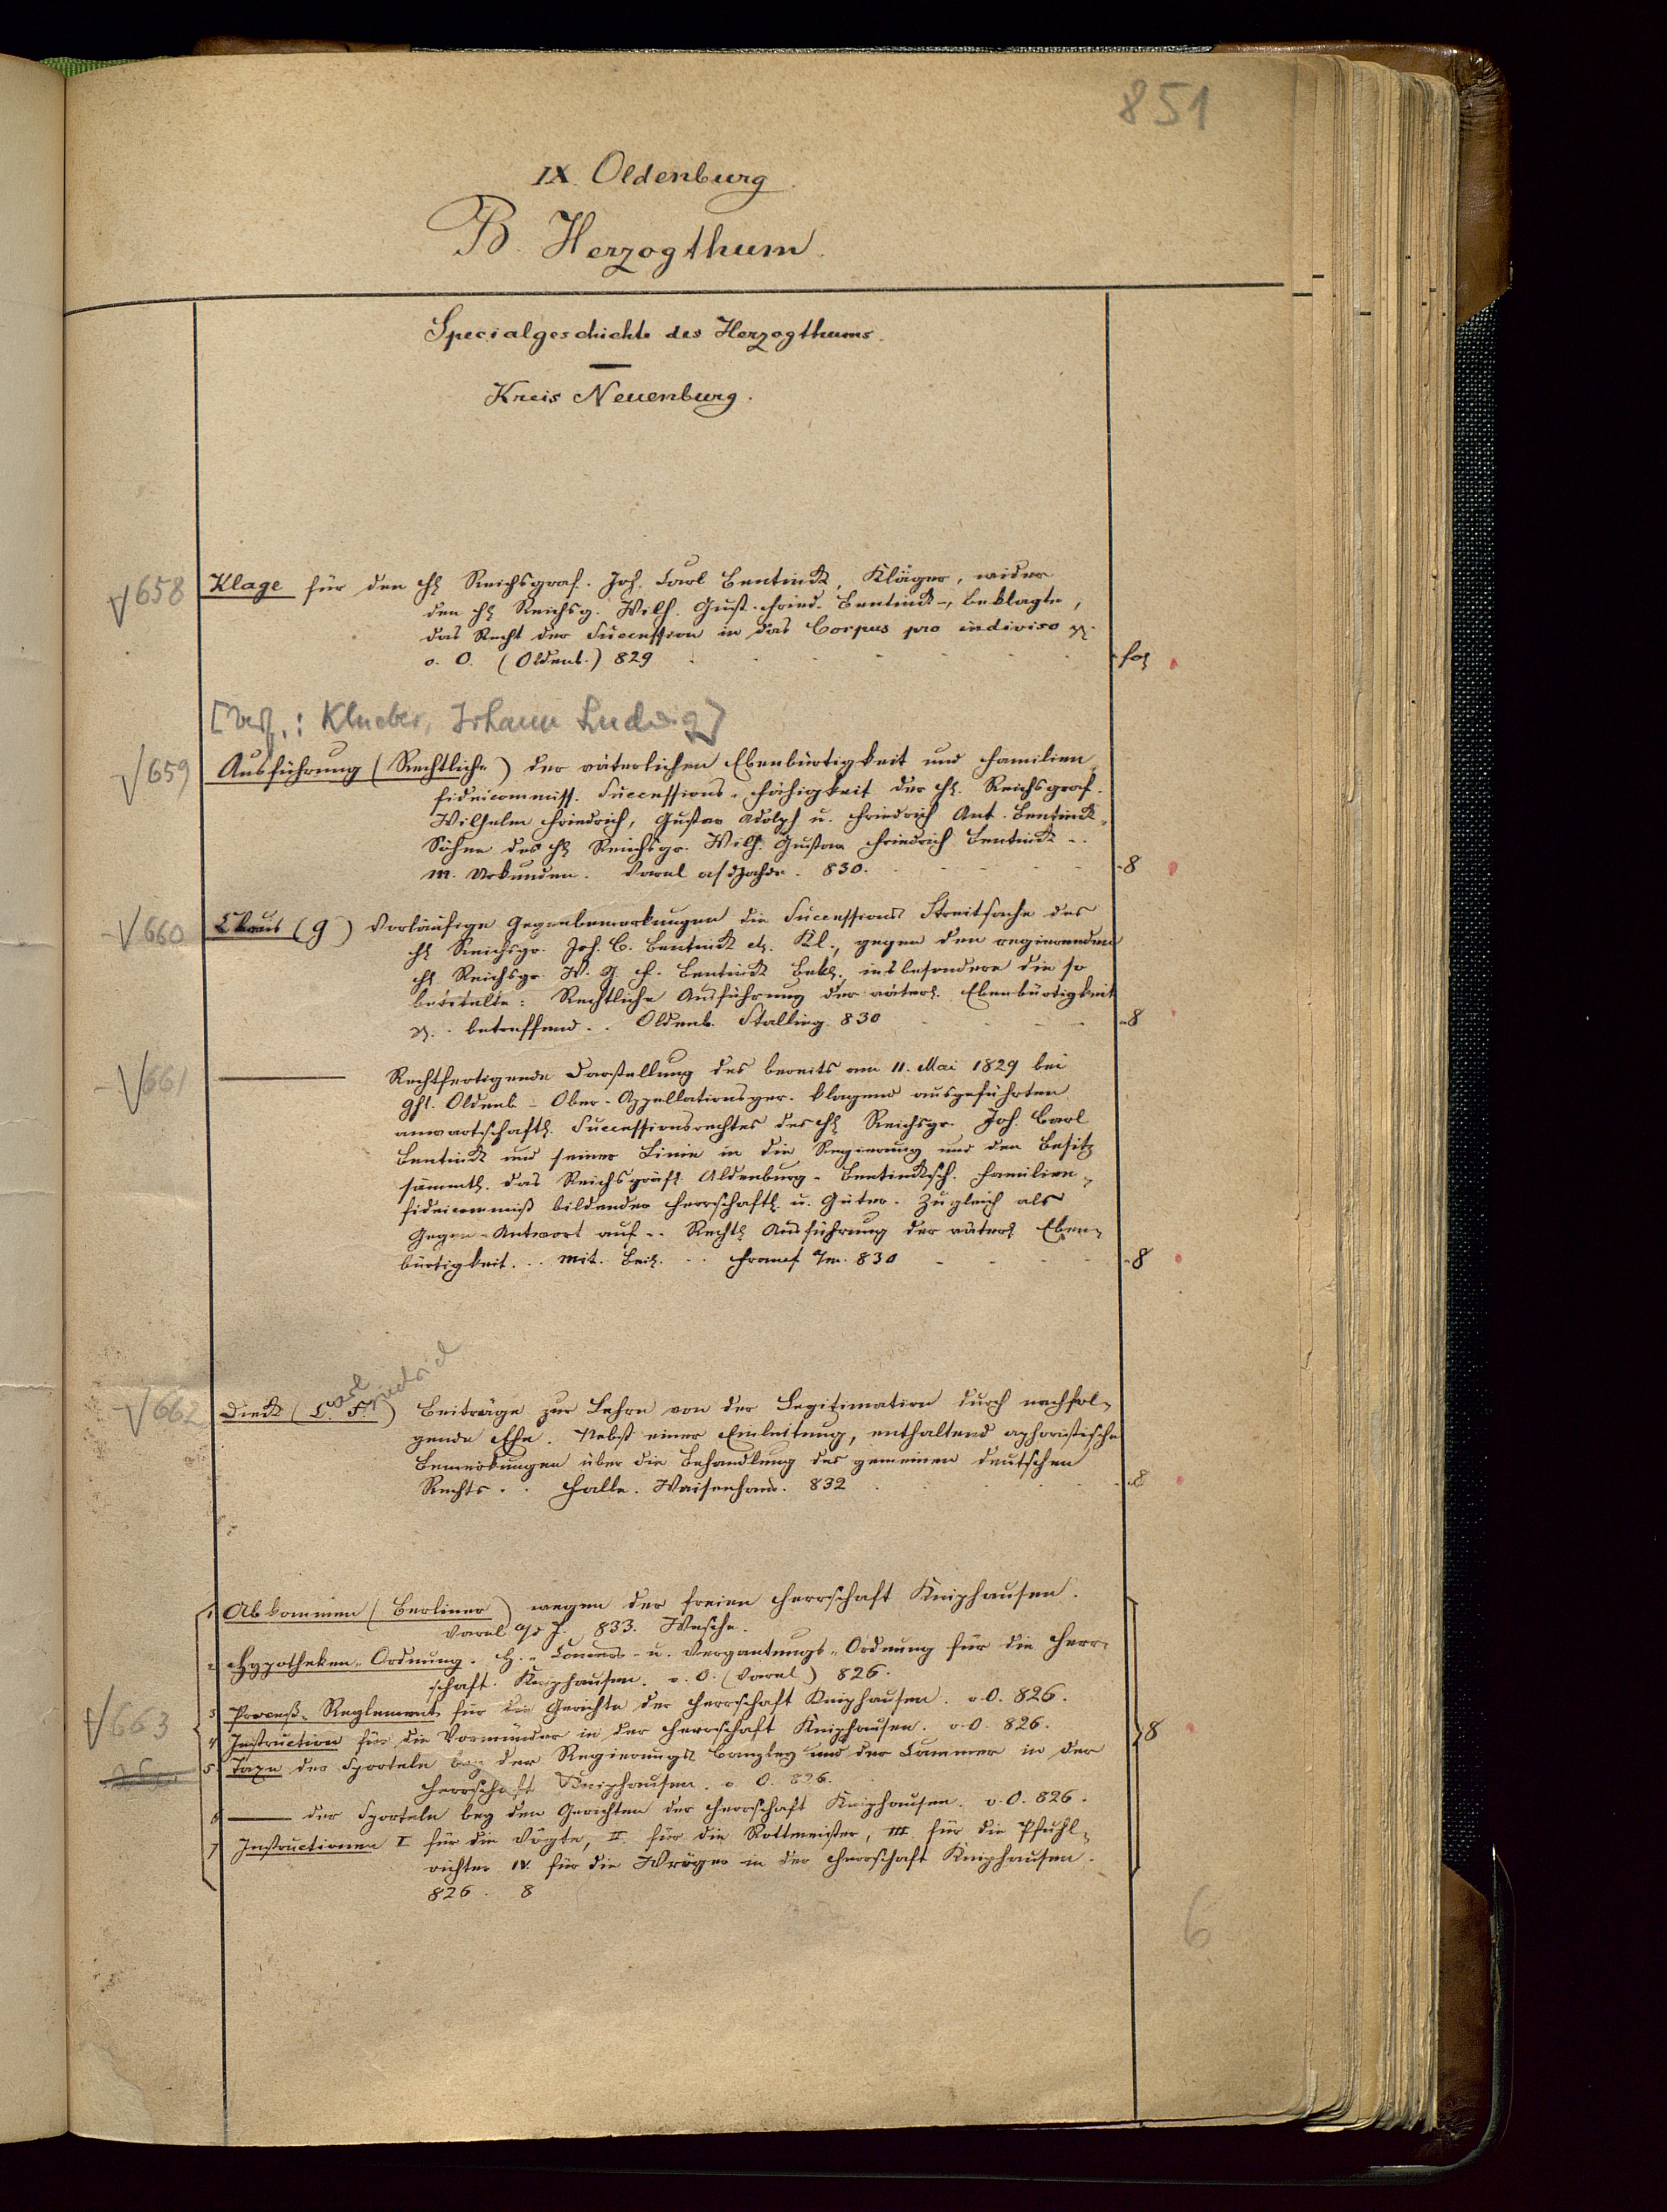 851
IX. Oldenburg.
B. Herzogthum.
Specialgeschichte des Herzogthums.
Kreis Neuenburg.
658 Klage für den H. Reichsgraf. Joh. Carl Bentinck, Kläger, wider
den H. Reichsg. Wilh. Gust. Fried. Bentinck, Beklagte,
das Recht der Succession in das Corpus pro indiviso
o. O. (Oldenb.) 829 fol
[Verf.: Klueber, Johann Ludwig]
659 Ausführung (Rechtliche) der väterlichen Ebenbürtigkeit und Familien-
fideicommiss. Successions-Fähigkeit der H. Reichsgraf.
Wilhelm Friedrich, Gustav Adolph u. Friedrich Ant. Bentinck,
Söhne des H. Reichsgr. Wilh. Gustav Friedrich Bentinck ..
m. Urkunden. Varel a/d Jahde. 830. 8
660 (G) Vorläufige Gegenbemerkungen die Successions Streitsache des
H. Reichsgr. Joh. C. Bentinck Kl., gegen den regierenden
H. Reichsgr. W. G. F. Bentinck Bekl. insbesondere die so
betitelte: Rechtliche Ausführung der väterl. Ebenbürtigkeit
betreffend .. Oldenb. Stalling. 830 8
661 — Rechtfertigende Darstellung des bereits am 11. Mai 1829 bei
Oldenb. Ober-Appellationsger. klagend ausgeführten
anwartschaftl. Successionsrechtes des H. Reichsgr. Joh. Carl
Bentinck und seiner Linie in die Regierung und den Besitz
sämmtl. das Reichsgräfl. Aldenburg-Bentincksch. Familien-
fideicommiß bildender Herrschaftl. u. Güter. Zugleich als
Gegen-Antwort auf .. Rechtl. Ausführung der väterl. Eben-
bürtigkeit. .. mit. Beil. .. Francf. a/m. 830 8
Carl Friedrich
662 Dieck (C. F.) Beiträge zur Lehre von der Legitimation durch nachfol-
gende Ehe. Nebst einer Einleitung, enthaltend aphoristische
Bemerkungen über die Behandlung des gemeinen deutschen
Rechts .. Halle. Waisenhaus. 832 8
1 Abkommen (Berliner) wegen der freien Herrschaft Kniphausen.
Varel a/d J. 833.
2 Hypotheken-Ordnung. H.- Concurs- u. Vergantungs-Ordnung für die Herr-
schaft Kniphausen. o. O. (Varel) 826.
3 Proceß-Reglement für die Gerichte der Herrschaft Kniphausen. o. O. 826.
663 4 Instruction für die Vormünder in der Herrschaft Kniphausen. o. O. 826. 8
5 Taxe der Sporteln bey der Regierungs Canzley und der Cammer in der
Herrschaft Kniphausen. o. O. 826.
6 — der Sporteln bey den Gerichten der Herrschaft Kniphausen. o. O. 826.
7 Instructionen I für die Vögte, II. für die Rottmeister, III für die Pfuhl-
richter IV. für die Wröger in der Herrschaft Kniphausen.
826. 8
6